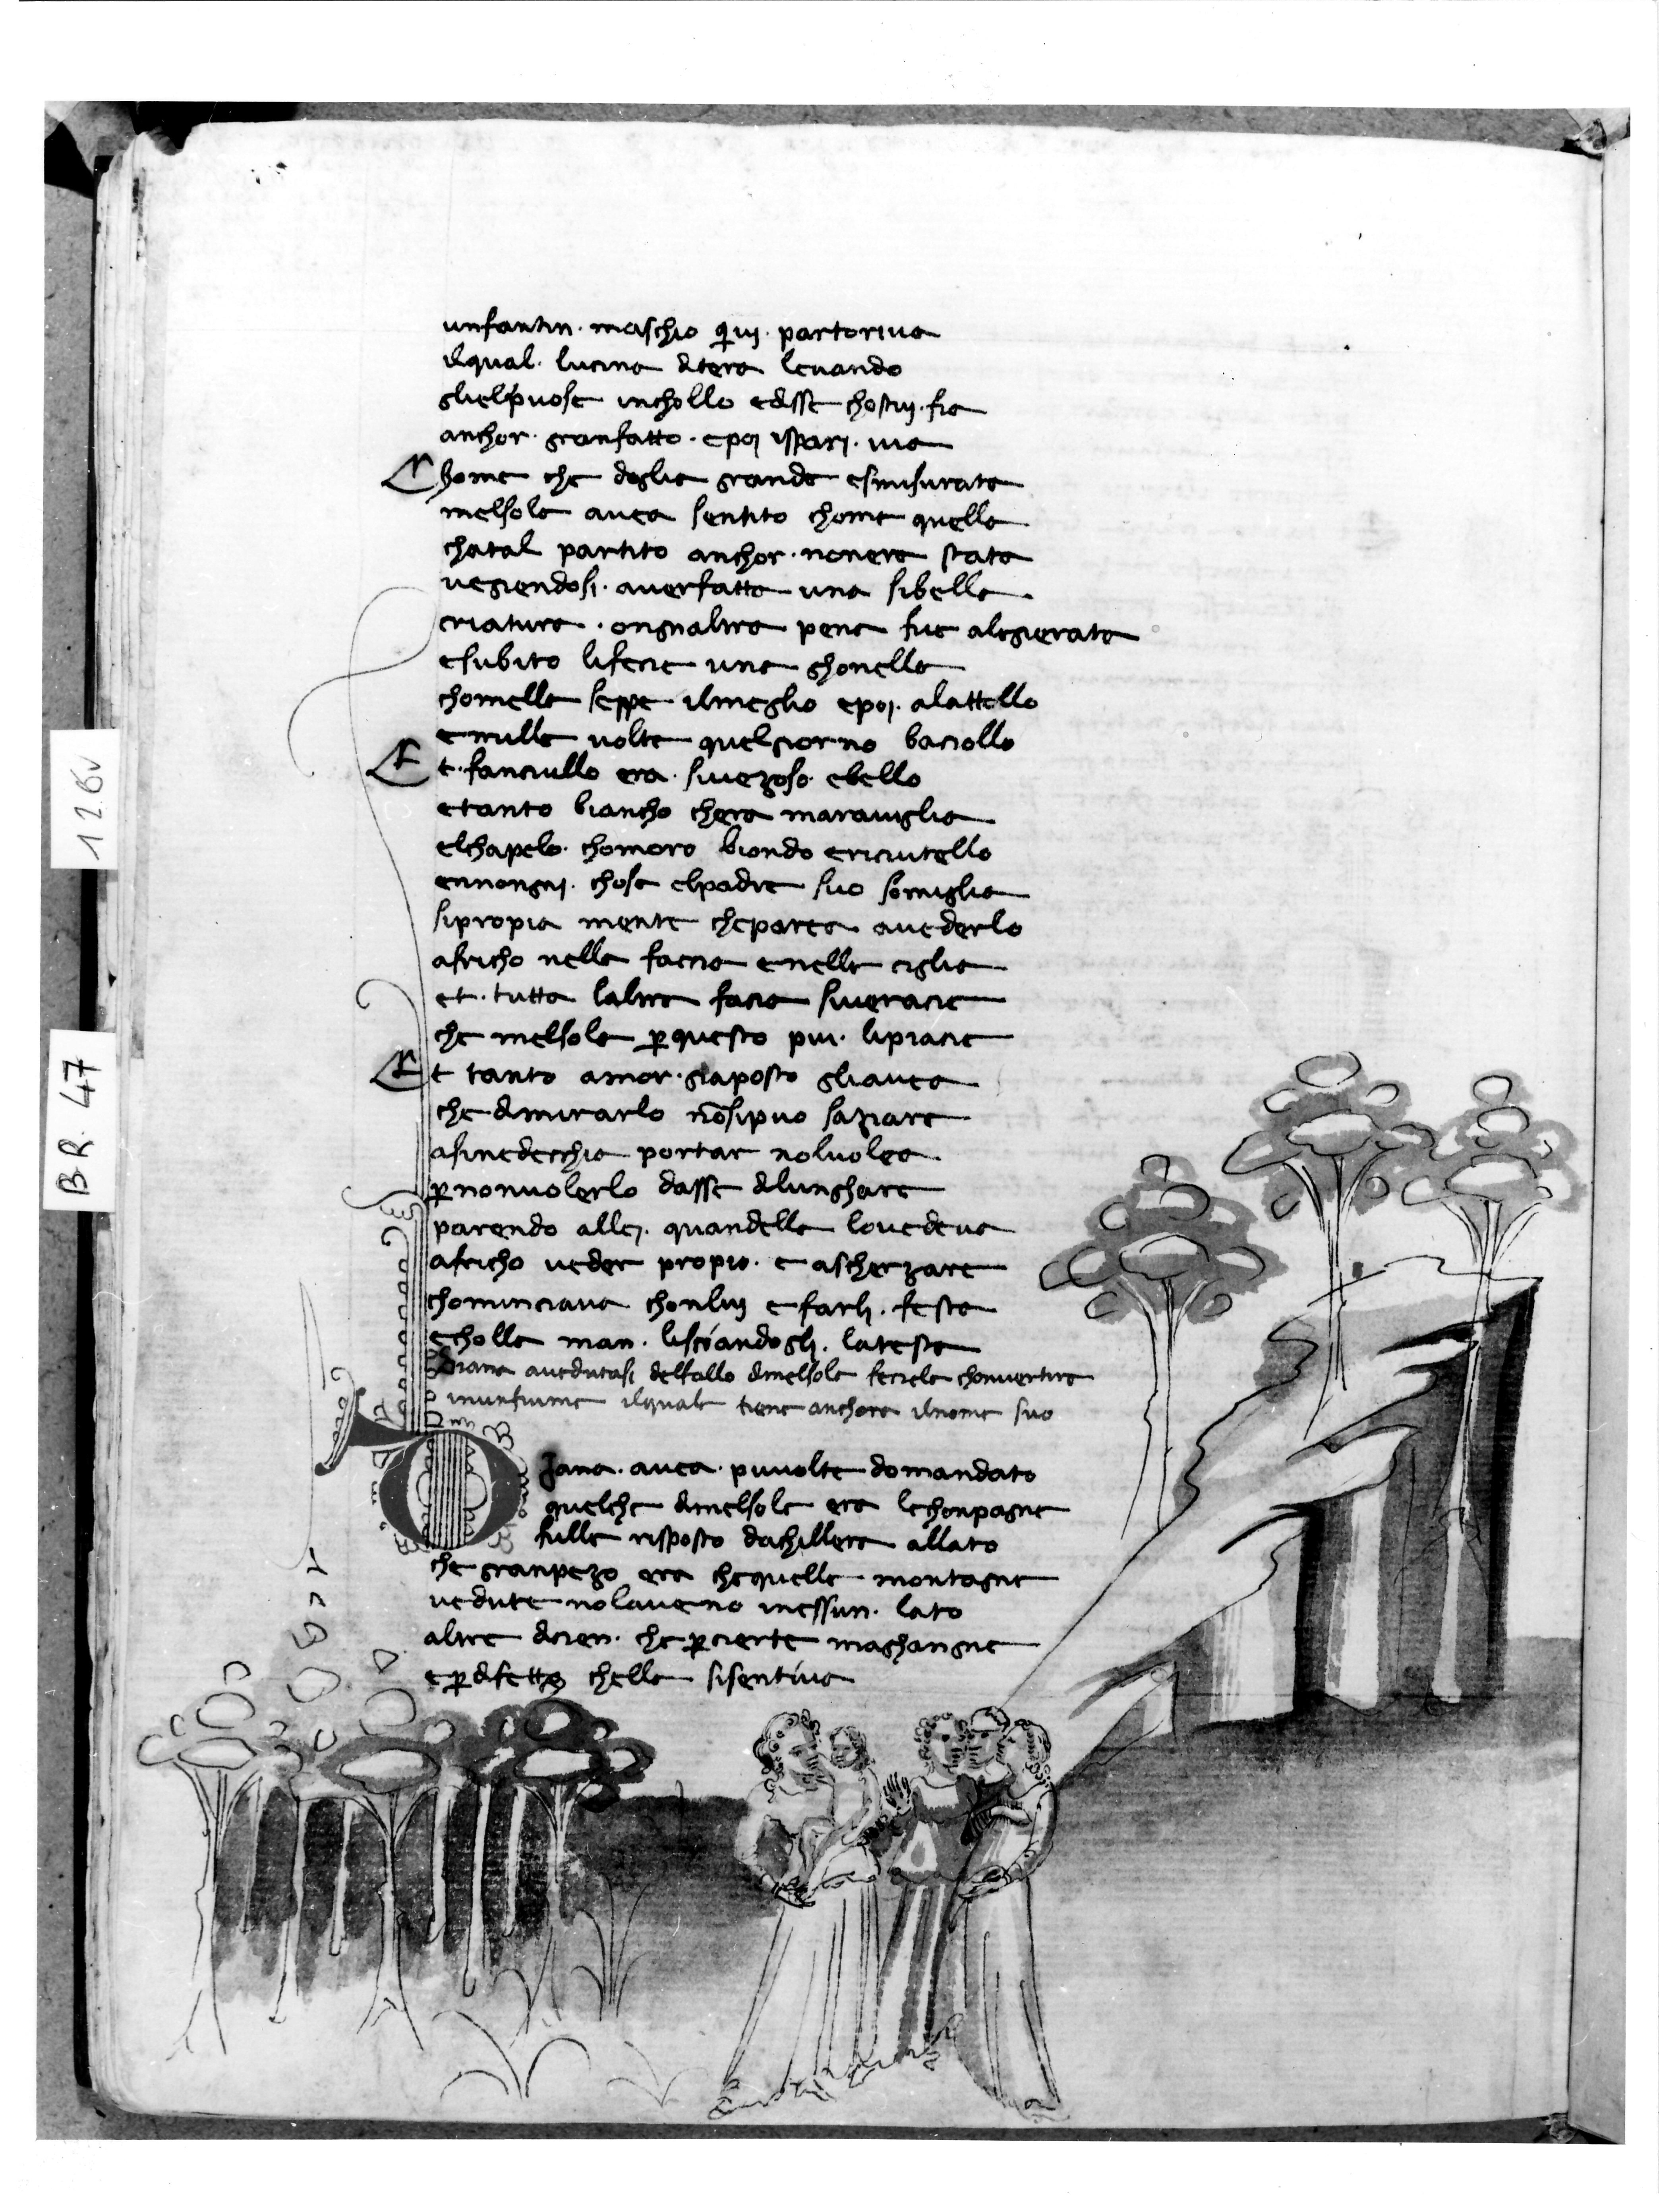 unfantin · maschio q̄iuj · partoriua
ilqual · lucina diterra leuando
glielpuose inchollo edisse chostuj · fia
anchor · granfatto · epoj ispari · uia
Chome che doglia grande esmisurata
melsola auea sentito chome quella
chatal partito anchor · nonera stata
uegiendosi · auerfatto una sibella
criatura · ongnaltra pena fue alegierata
esubito lifecie una ghonella
chomella seppe ilmeglio epoj · alattollo
emille uolte quelgiorno baciollo
Et · fanciullo era · siuezoso · ebello
etanto biancho chera marauiglia
elchapelo · chomoro biondo ericiutello
ennongnj · chosa elpadre suo somiglia
sipropia mente chepareа auederlo
africho nella faccia enelle ciglia
et · tutta laltra facia siueracie
che melsola p̱questo piu · lipiacie
Et tanto amor · giaposto gliauea
che dimirarlo nōsipuo saziare
asinedecchia portar noluolea
p̱nonuolerlo dasse dilunghare
parendo allej · quandella louedeua
africho ueder propio · e ascherzare
chominciaua chonluj e farlj · festa
echolla man · lisciandoglj · latesta
Diana auedutasi delfallo dimelsola feciela chonuertire
inunfiume ilquale tiene anchora ilnome suo
Diana · auea · piuuolte domandato
quelche dimelsola era lechonpagne
fulle risposto dachillera allato
che granpezo era chequelle montagne
uedute nolaueno inessun · lato
altre dicien · che p̱cierte maghangne
e p̱ difetto chella sisentiua
126v
BR. 47